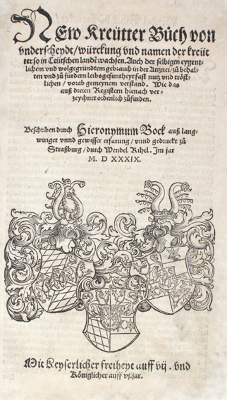 New Kreütter Bůch von
vnderscheydt / würckung vnd namen der kreüt
ter so in Teütschen landē wachsen. Auch der selbigen eygent
lichem vnd wolgegründtem gebrauch in der Artznei / zů behal
ten vnd zů fürdern leibs gesuntheyt fast nutz vnd tröst
lichen / vorab gemeynem verstand. Wie das
auß dreien Registern hienach ver
zeychnet ordenlich zůfinden.
Beschriben durch Hieronymum Bock auß lang-
wiriger vnnd gewisser erfarung / vnnd gedruckt zů
Straßburg / durch Wendel Rihel. Im jar
M. D XXXIX.
Mit Keyserlicher freiheyt auff vij. vnd
Königlicher auff vj. jar.